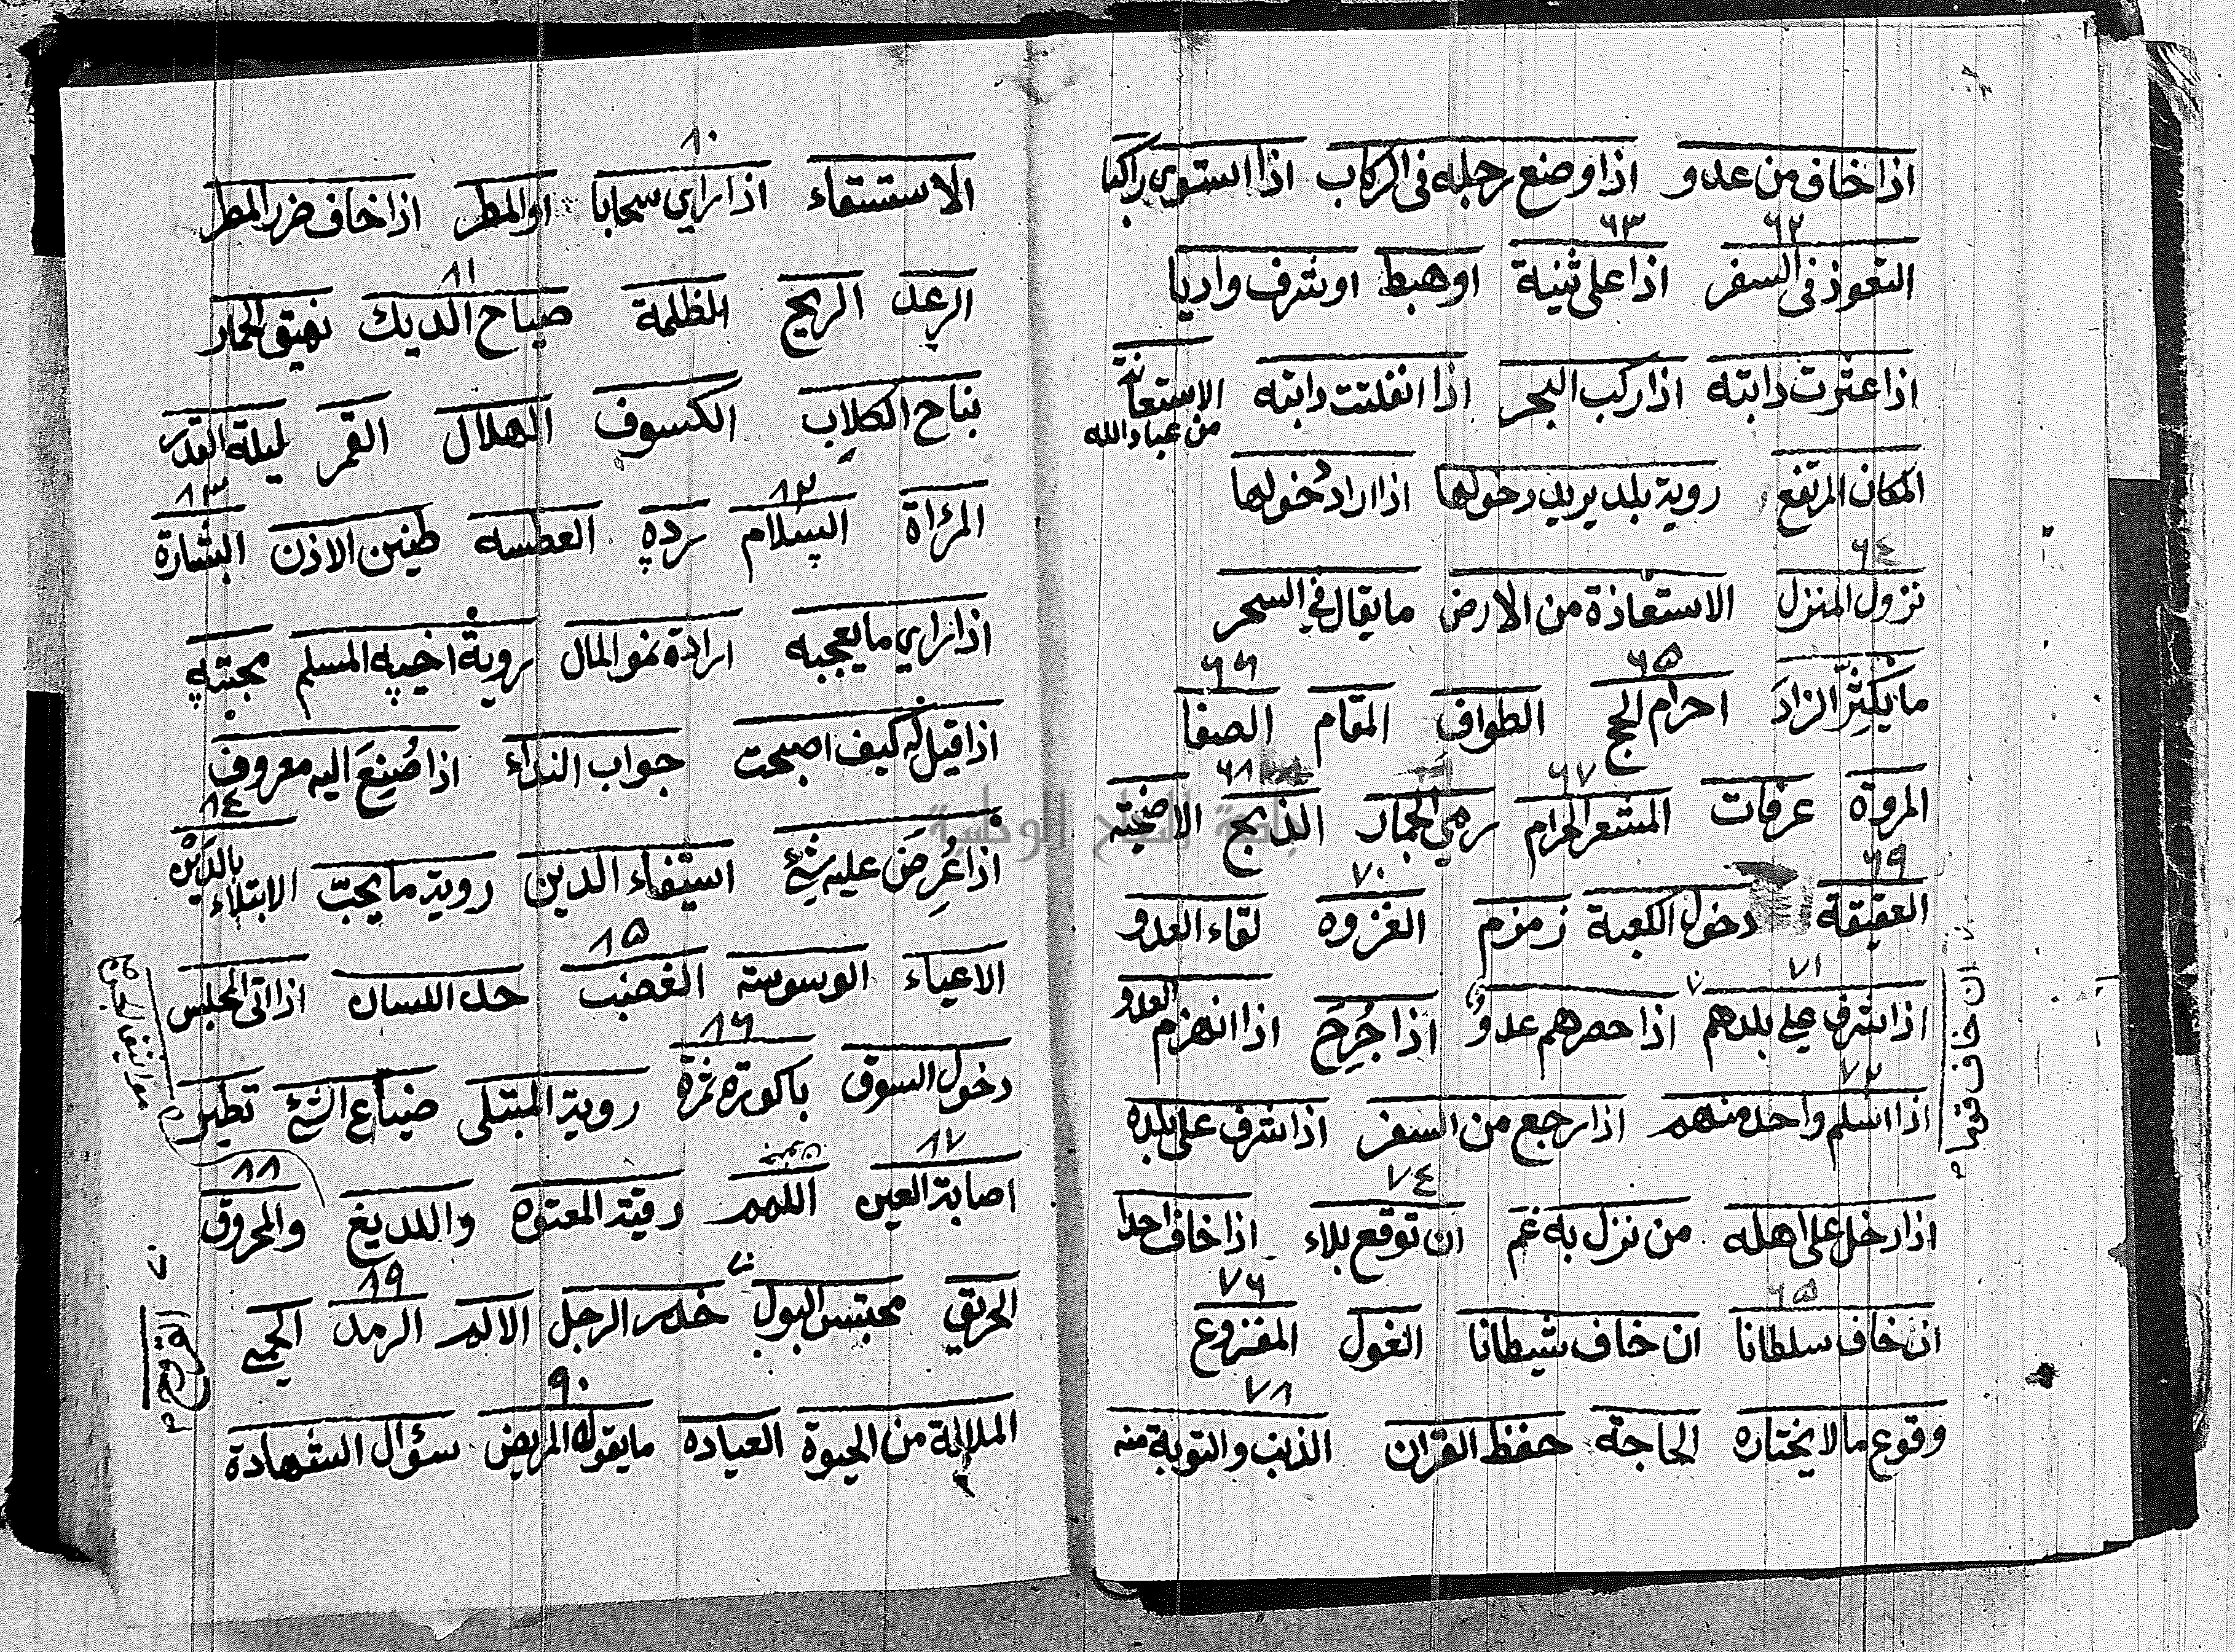 اذا خاف من عدو اذا وضع رجله فى الركاب اذا استوى راكبا
٦٢ ٦٣
التعوذ فى السفر اذا على ثنية او هبط او شرف واديا
اذا عثرت دابته اذا ركب البحر اذا انفلتت دابته الاستعانة من عباد الله
المكان المرتفع روية بلد يريد دخولها اذا اراد دخولها
٦٤
نزول المنزل الاستعاذة من الارض ما يقال في السحر
٦٥ ٦٦
ما يكثر الزاد احرام الحج الطواف المقام الصفا
٦٧ ٦٨
المروة عرفات المشعر الحرام رمي الجمار الذبح الاضحيته
٦٩ ٧٠
العقيقة دخول الكعبة زمزم الغزوه لقاء العدو
٧١
اذا شرف على بلدهم اذا حصرهم عدو اذا جُرِحَ اذا انهزم العدو
ان خاف قوما
٧٢
اذا اسلم واحد منهم اذا رجع من السفر اذا شرف على بلده
٧٤
اذا دخل على اهله من نزل به غم ان توقع بلاء اذا خاف احدا
٦٥ ٧٦
ان خاف سلطانا ان خاف شيطانا الغول المفزوع
٧٨
وقوع ما لا يختاره الحاجة حفظ القران الذنب والتوبة منه
٨٠
الاستسقاء اذا راي سحابا او المطر اذا خاف ضرر المطر
٨١
الرعد الريح المظلمة صياح الديك نهيق الحمار
نباح الكلاب الكسوف الهلال القمر ليلة القدر
٨٢ ٨٣
المرٔاة السلام رده العطسه طنين الاذن البشارة
اذا راي ما يعجبه ارادة نمو المال روية اخيه المسلم محبته
اذا قيل له كيف اصبحت جواب النداء اذا صُنِعَ اليه معروف
٨٤
اذا عُرِضَ عليه شئ استيفاء الدين روية ما يحبّ الابتلاء بالدَيْن
٨٥
الاعياء الوسوسة الغضب حد اللسان اذا اتى المجلس
٨٦
دخول السوق باكورة ثمرة روية المبتلى ضياع الشئ تطير
٨٧ ٨٨
اصابة العين اللمم رقية المعتوه واللديغ والمحروق
٨٩
الحريق محتبس البول خدر الرجل الالم الرمد الحمى
القرح
٩٠
الملالة من الحيوة العياده ما يقول المريض سؤال الشهادة